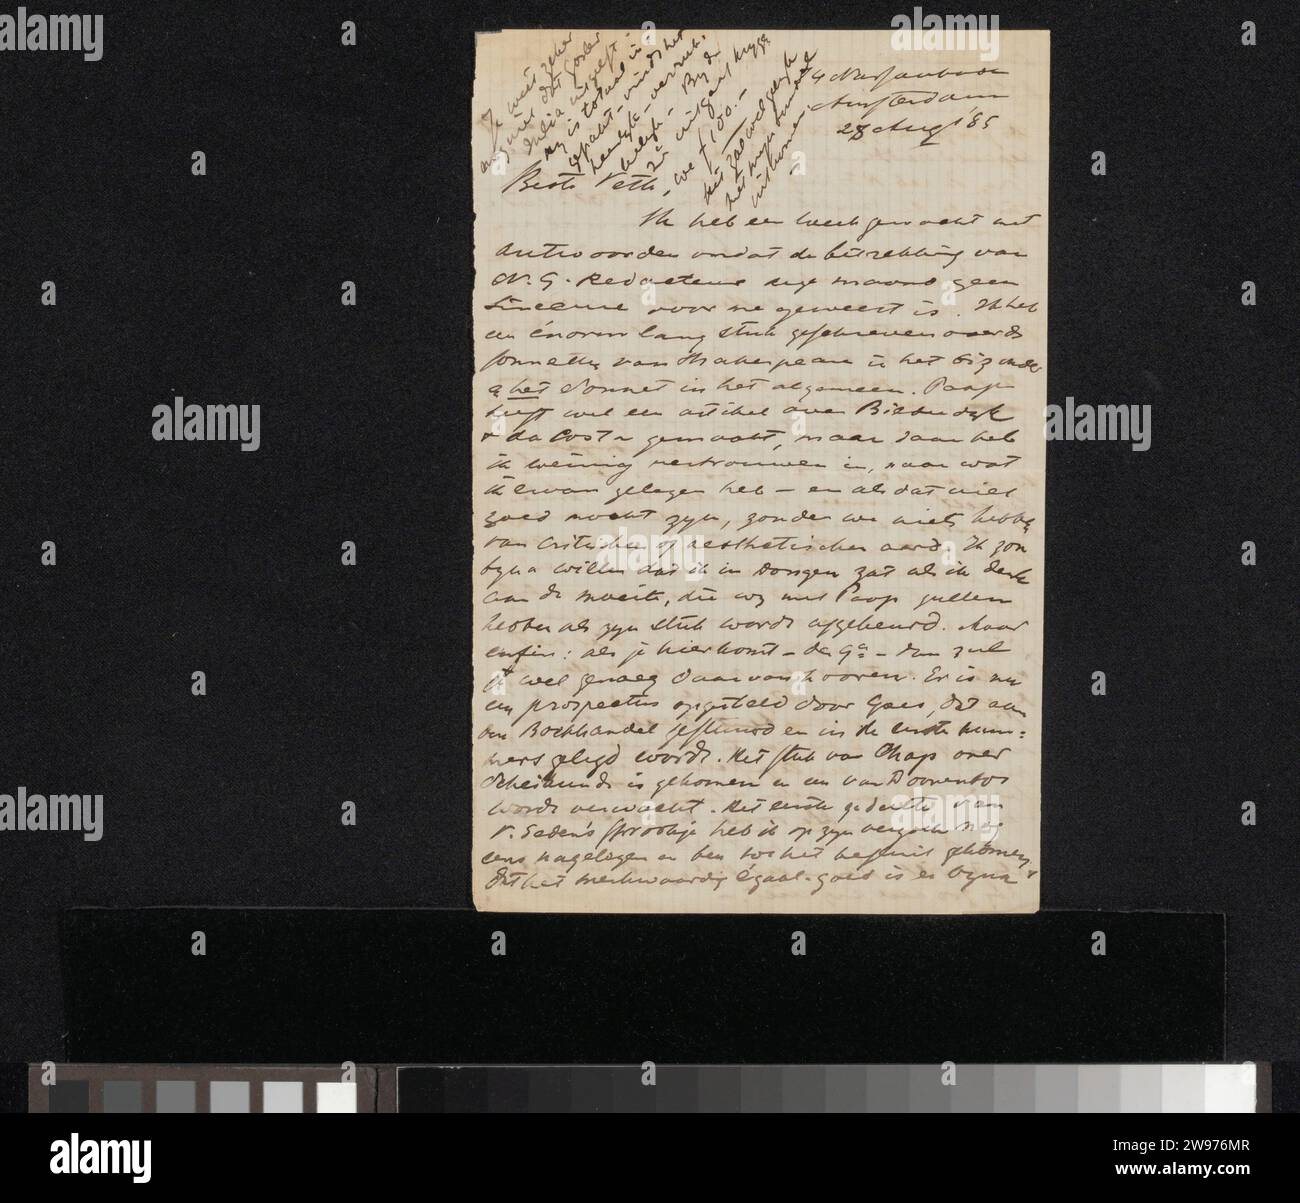 Je weet zeker
nog niet dat Gosler
India uitgeeft -
hy is totaal in-
gepakt - vindt het
heerlijk - verrukk-
kelyk - By de
uitgaaf krygt
we f 100.-
Het zal wel gelyk
met myn bundel
uitkomen.
74 Nassaukade
Amsterdam
28 Aug! '85
Beste Veth,
Ik heb een week gewacht met
antwoorden omdat de betrekking van
N. G. Redacteur deze maand geen
sinecure voor me geweest is. Ik heb
een énorm lang stuk geschreven over de
sonnetten van Shakespeare in het bizonder
& het Sonnet in het algemeen. Paap
heeft wel een artikel over Bilderdyk
& da Costa gemaakt, maar daar heb
ik weinig vertrouwen in, naar wat
ik ervan gelezen heb - en als dat niet
goed mocht zyn, zouden we niets hebben
van critischen of aesthetischen aard. Ik zou
byna willen dat ik in Dongen zat als ik denk
aan de moeite, die wy met Paap zullen
hebben als zyn stuk wordt afgekeurd. Maar
enfin: als je hier komt - de 9e - dan zul
je wel genoeg daarvan hooren. Er is nu
een prospectus opgesteld door Goes, dat aan
den Boekhandel gestuurd en in de eerste num-
mers gelegd wordt. Het stuk van Chap over
Scheikunde is gekomen en een van Doorenbos
wordt verwacht. Het eerste gedeelte van
v. Eeden's sprookje heb ik op zyn verzoek nog
eens nagelezen en ben tot het besluit gekomen,
dat het merkwaardig égaal-goed is en byna
alamy
Image ID: 2W976MR
www.alamy.com